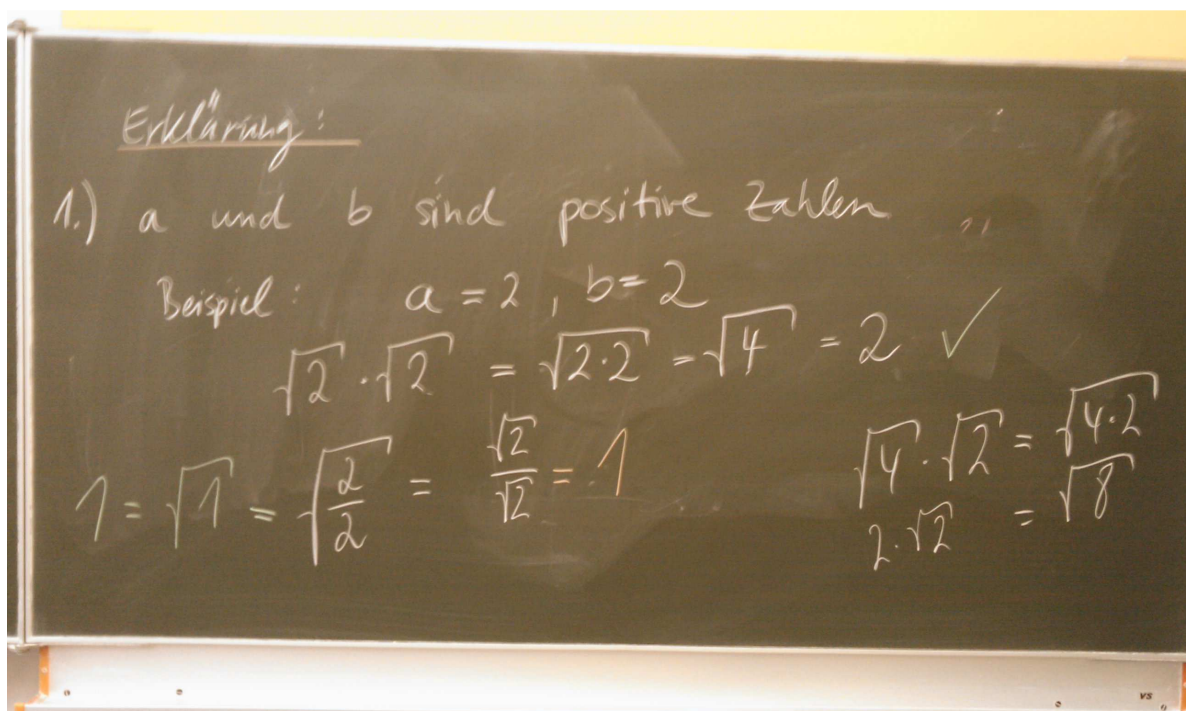 Erklärung:
1.) a und b sind positive Zahlen
Beispiel: a = 2, b = 2
√2 · √2 = √(2·2) = √4 = 2 ✓
1 = √1 = √(2/2) = √2/√2 = 1
√4 · √2 = √(4·2)
2·√2 = √8
vs